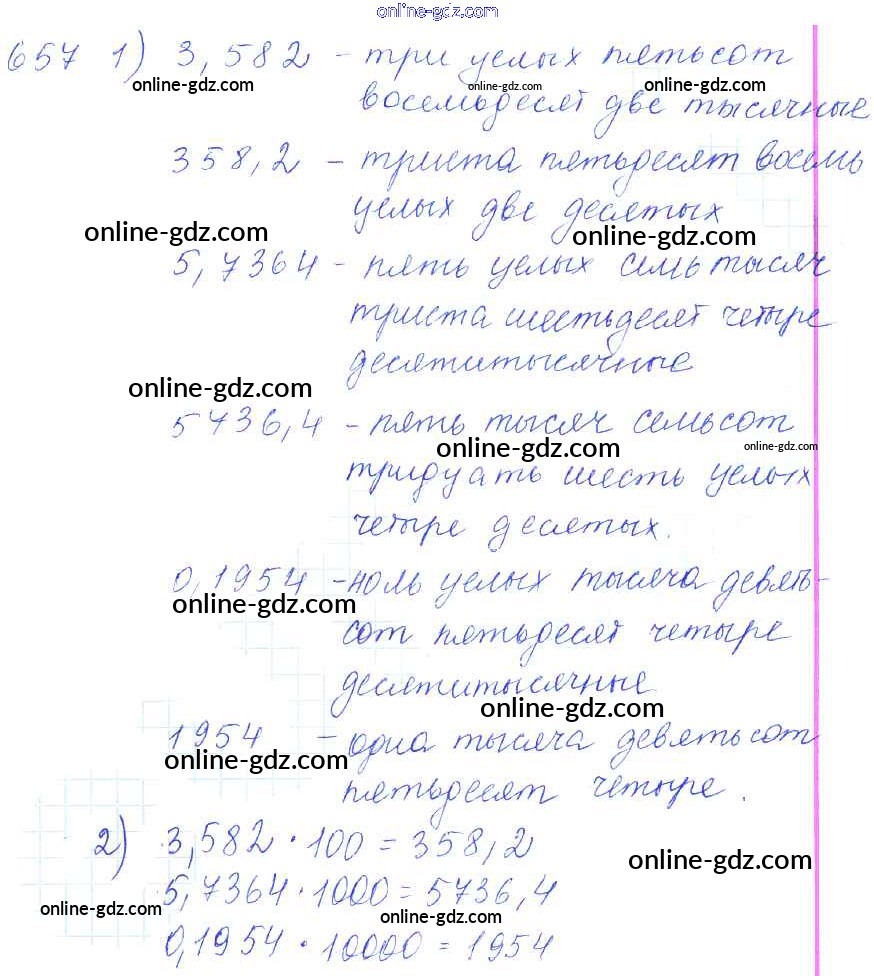 online-gdz.com
657 1) 3,582 - три целых пятьсот
online-gdz.com online-gdz.com online-gdz.com
восемьдесят две тысячные
358,2 - триста пятьдесят восемь
целых две десятых
online-gdz.com online-gdz.com
5,7364 - пять целых семь тысяч
триста шестьдесят четыре
десятитысячные
online-gdz.com
5736,4 - пять тысяч семьсот
online-gdz.com online-gdz.com
тридцать шесть целых
четыре десятых.
0,1954 - ноль целых тысяча девять-
online-gdz.com
сот пятьдесят четыре
десятитысячные
online-gdz.com
1954 - одна тысяча девятьсот
online-gdz.com
пятьдесят четыре.
2) 3,582 · 100 = 358,2
online-gdz.com
5,7364 · 1000 = 5736,4
online-gdz.com online-gdz.com
0,1954 · 10000 = 1954